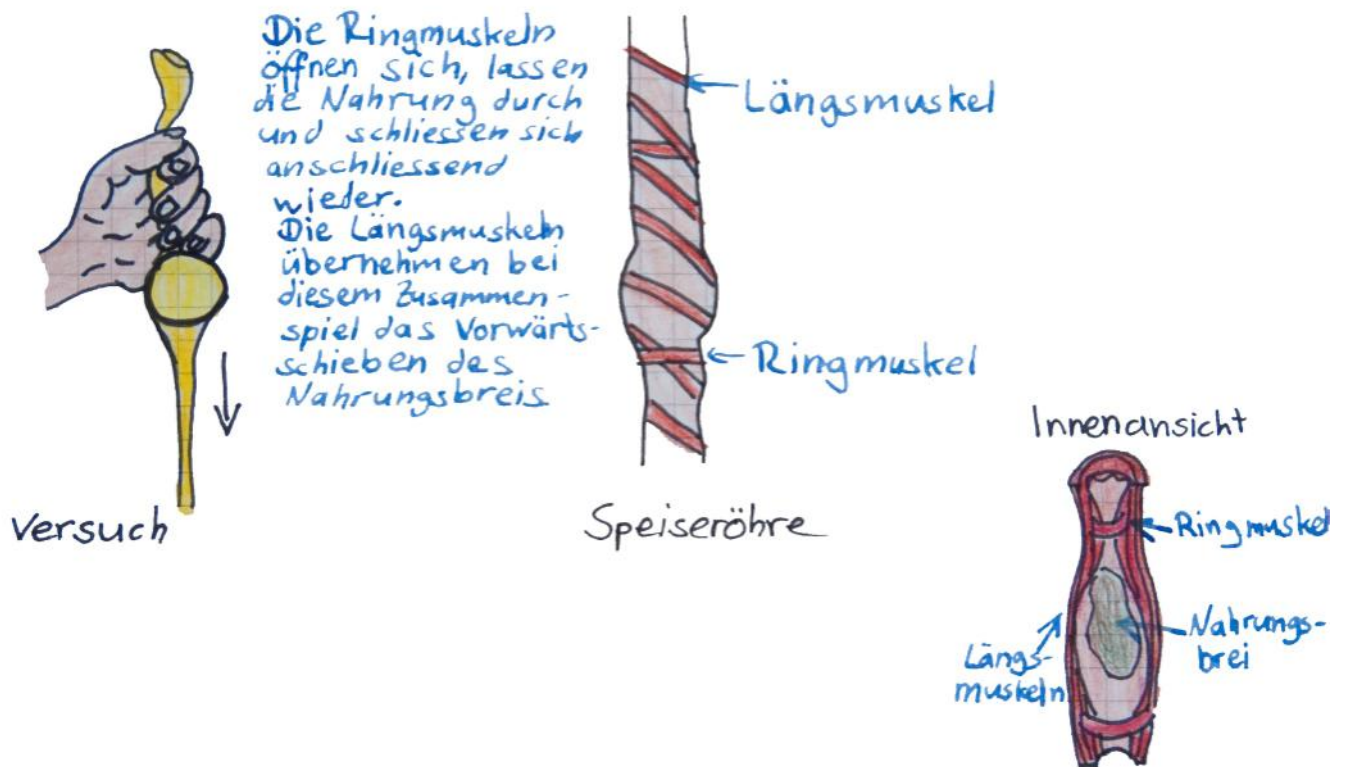 Die Ringmuskeln
öffnen sich, lassen
die Nahrung durch
und schliessen sich
anschliessend
wieder.
Die Längsmuskeln
übernehmen bei
diesem Zusammen-
spiel das Vorwärts-
schieben des
Nahrungsbreis
Versuch
Längsmuskel
Ringmuskel
Speiseröhre
Innenansicht
Ringmuskel
Nahrungs-
brei
Längs-
muskeln